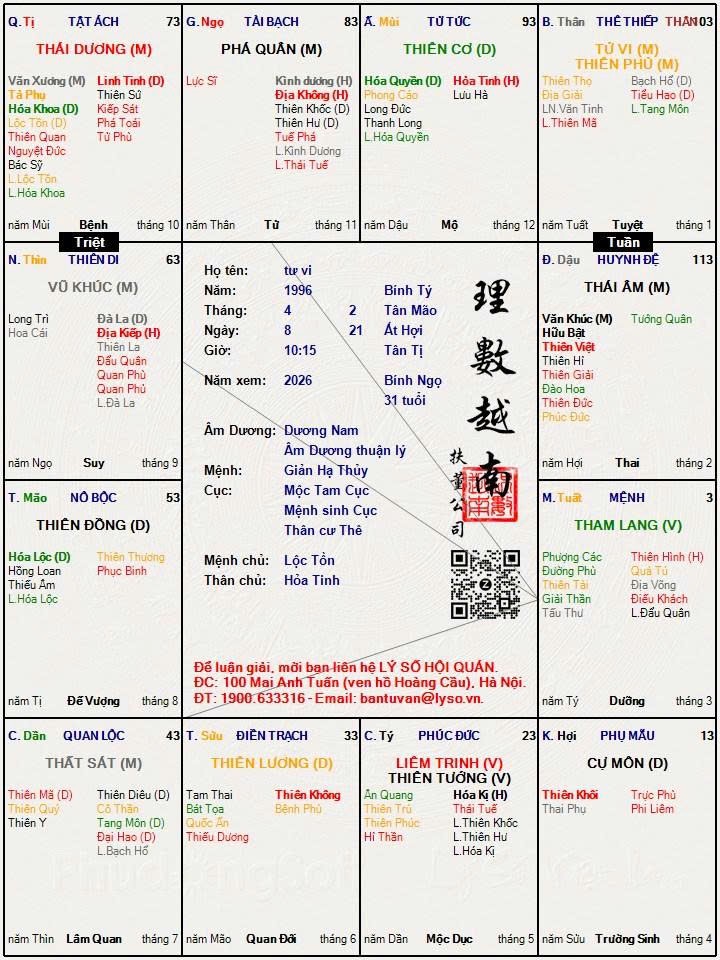 Q. Tị TẬT ÁCH 73
THÁI DƯƠNG (M)
Văn Xương (M) Linh Tinh (D)
Tả Phụ Thiên Sứ
Hóa Khoa (D) Kiếp Sát
Lộc Tồn (D) Phá Toái
Thiên Quan Tử Phù
Nguyệt Đức
Bác Sỹ
L.Lộc Tồn
L.Hóa Khoa
năm Mùi Bệnh tháng 10
G. Ngọ TÀI BẠCH 83
PHÁ QUÂN (M)
Lực Sĩ Kình dương (H)
Địa Không (H)
Thiên Khốc (D)
Thiên Hư (D)
Tuế Phá
L.Kình Dương
L.Thái Tuế
năm Thân Tử tháng 11
Ấ. Mùi TỬ TỨC 93
THIÊN CƠ (D)
Hóa Quyền (D) Hỏa Tinh (H)
Phong Cáo Lưu Hà
Long Đức
Thanh Long
L.Hóa Quyền
năm Dậu Mộ tháng 12
B. Thân THÊ THIẾP THÂN 103
TỬ VI (M)
THIÊN PHỦ (M)
Thiên Thọ Bạch Hổ (D)
Địa Giải Tiểu Hao (D)
LN.Văn Tinh L.Tang Môn
L.Thiên Mã
năm Tuất Tuyệt tháng 1
Triệt
Tuần
N. Thìn THIÊN DI 63
VŨ KHÚC (M)
Long Trì Đà La (D)
Hoa Cái Địa Kiếp (H)
Thiên La
Đẩu Quân
Quan Phù
Quan Phủ
L.Đà La
năm Ngọ Suy tháng 9
Họ tên: tư vi
Năm: 1996 Bính Tý
Tháng: 4 2 Tân Mão
Ngày: 8 21 Ất Hợi
Giờ: 10:15 Tân Tị
Năm xem: 2026 Bính Ngọ
31 tuổi
Âm Dương: Dương Nam
Âm Dương thuận lý
Mệnh: Giản Hạ Thủy
Cục: Mộc Tam Cục
Mệnh sinh Cục
Thân cư Thê
Mệnh chủ: Lộc Tồn
Thân chủ: Hỏa Tinh
理數越南
扶董公司
Để luận giải, mời bạn liên hệ LÝ SỐ HỘI QUÁN.
ĐC: 100 Mai Anh Tuấn (ven hồ Hoàng Cầu), Hà Nội.
ĐT: 1900.633316 - Email: bantuvan@lyso.vn.
Đ. Dậu HUYNH ĐỆ 113
THÁI ÂM (M)
Văn Khúc (M) Tướng Quân
Hữu Bật
Thiên Việt
Thiên Hỉ
Thiên Giải
Đào Hoa
Thiên Đức
Phúc Đức
năm Hợi Thai tháng 2
T. Mão NÔ BỘC 53
THIÊN ĐỒNG (D)
Hóa Lộc (D) Thiên Thương
Hồng Loan Phục Binh
Thiếu Âm
L.Hóa Lộc
năm Tị Đế Vượng tháng 8
M. Tuất MỆNH 3
THAM LANG (V)
Phượng Các Thiên Hình (H)
Đường Phù Quả Tú
Thiên Tài Địa Võng
Giải Thần Điếu Khách
Tấu Thư L.Đẩu Quân
năm Tý Dưỡng tháng 3
C. Dần QUAN LỘC 43
THẤT SÁT (M)
Thiên Mã (D) Thiên Diêu (D)
Thiên Quý Cô Thần
Thiên Y Tang Môn (D)
Đại Hao (D)
L.Bạch Hổ
năm Thìn Lâm Quan tháng 7
T. Sửu ĐIỀN TRẠCH 33
THIÊN LƯƠNG (D)
Tam Thai Thiên Không
Bát Tọa Bệnh Phù
Quốc Ấn
Thiếu Dương
năm Mão Quan Đới tháng 6
C. Tý PHÚC ĐỨC 23
LIÊM TRINH (V)
THIÊN TƯỚNG (V)
Ân Quang Hóa Kị (H)
Thiên Trù Thái Tuế
Thiên Phúc L.Thiên Khốc
Hỉ Thần L.Thiên Hư
L.Hóa Kị
năm Dần Mộc Dục tháng 5
K. Hợi PHỤ MẪU 13
CỰ MÔN (D)
Thiên Khôi Trực Phù
Thai Phụ Phi Liêm
năm Sửu Trường Sinh tháng 4